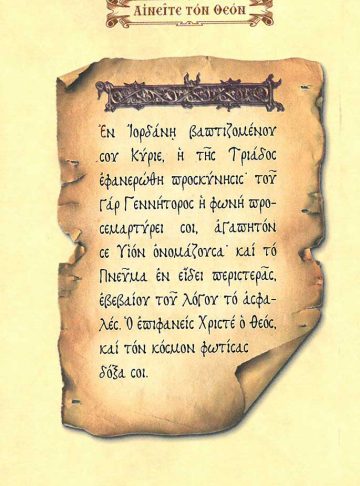 Αἰνεῖτε τόν Θεόν
Ἐν Ἰορδάνῃ βαπτιζομένου
σου Κύριε, ἡ τῆς Τριάδος
ἐφανερώθη προσκύνησις· τοῦ
γάρ Γεννήτορος ἡ φωνή προ-
σεμαρτύρει σοι, ἀγαπητόν
σε Υἱόν ὀνομάζουσα· καί τό
Πνεῦμα ἐν εἴδει περιστερᾶς,
ἐβεβαίου τοῦ λόγου τό ἀσφα-
λές. Ὁ ἐπιφανείς Χριστέ ὁ Θεός,
καί τόν κόσμον φωτίσας
δόξα σοι.